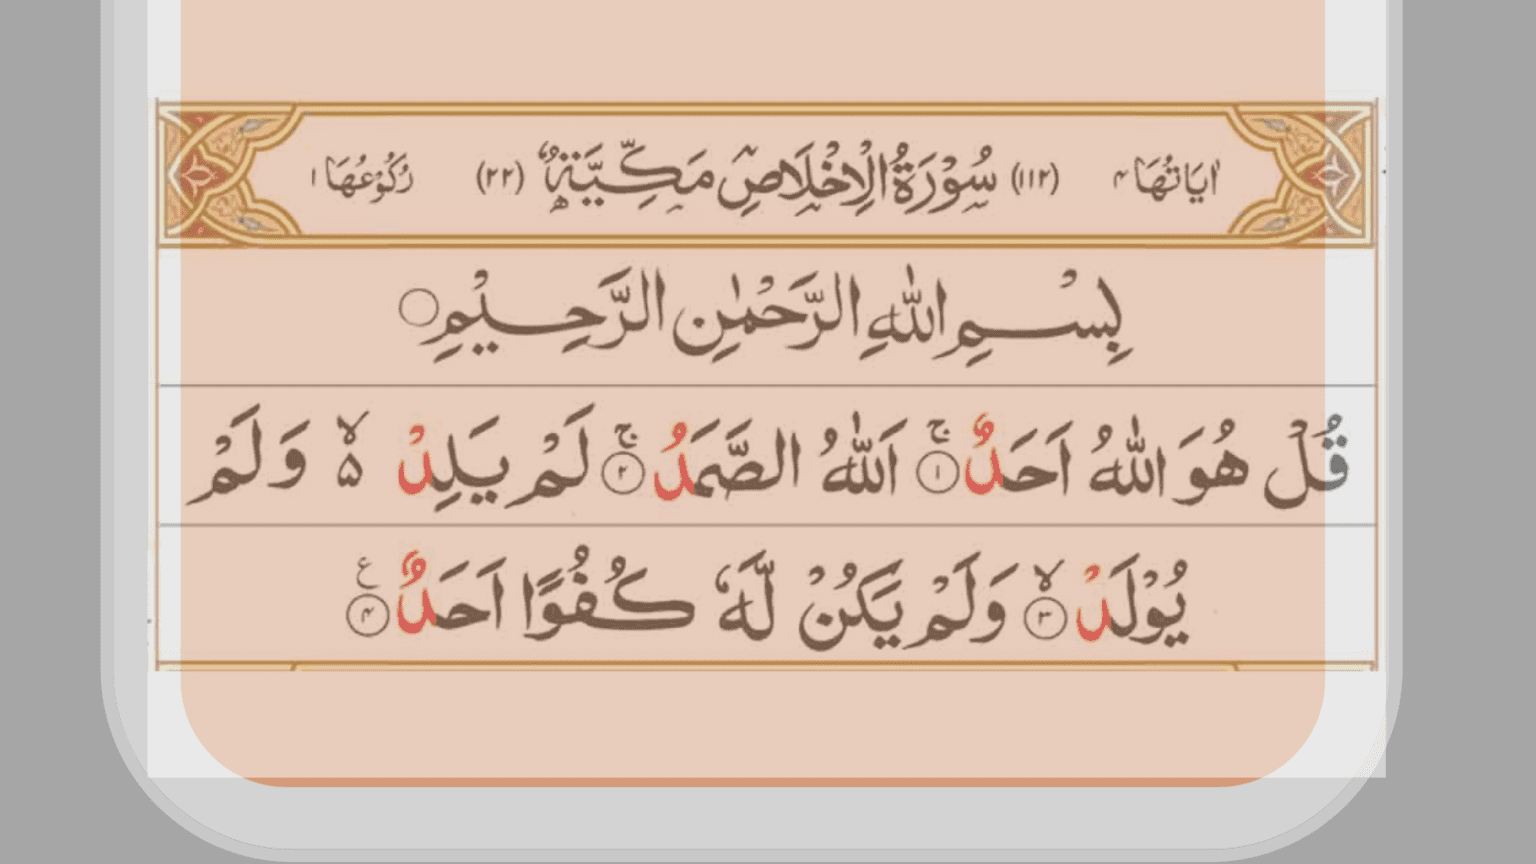 اٰيَاتُهَا ٤ (١١٢) سُوْرَةُ الْاِخْلَاصِ مَكِّيَّةٌ (٢٢) رُكُوْعُهَا ١
بِسْمِ اللّٰهِ الرَّحْمٰنِ الرَّحِيْمِ
قُلْ هُوَ اللّٰهُ اَحَدٌ ۚ ١ اَللّٰهُ الصَّمَدُ ۚ ٢ لَمْ يَلِدْ ۙ ۵ وَلَمْ
يُوْلَدْ ۙ ٣ وَلَمْ يَكُنْ لَّهٗ كُفُوًا اَحَدٌ ٤ ع